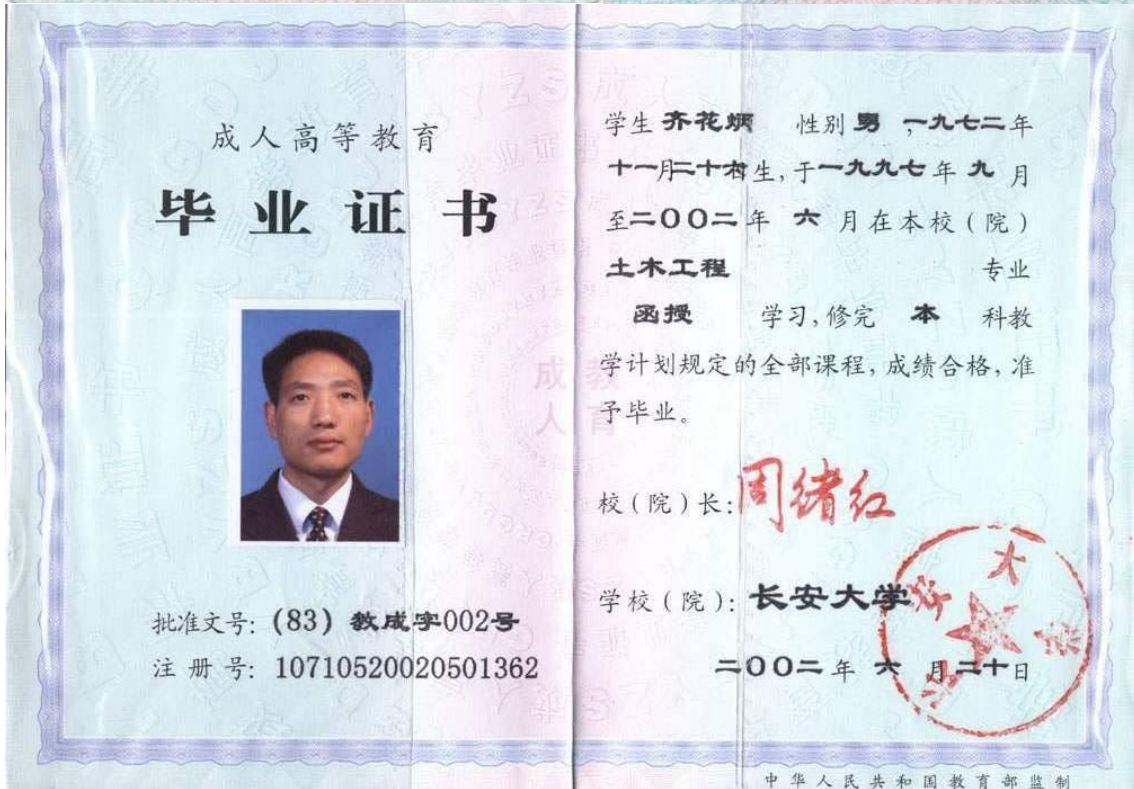 成人高等教育
毕业证书
批准文号:(83)教成字002号
注册号:10710520020501362
学生 齐花炳 性别 男,一九七二年
十一月二十六日生,于一九九七年 九 月
至二〇〇二年 六 月在本校(院)
土木工程 专业
函授 学习,修完 本 科教
学计划规定的全部课程,成绩合格,准
予毕业。
校(院)长:周绪红
学校(院):长安大学
二〇〇二年 六 月二十日
中华人民共和国教育部监制
成教
人育